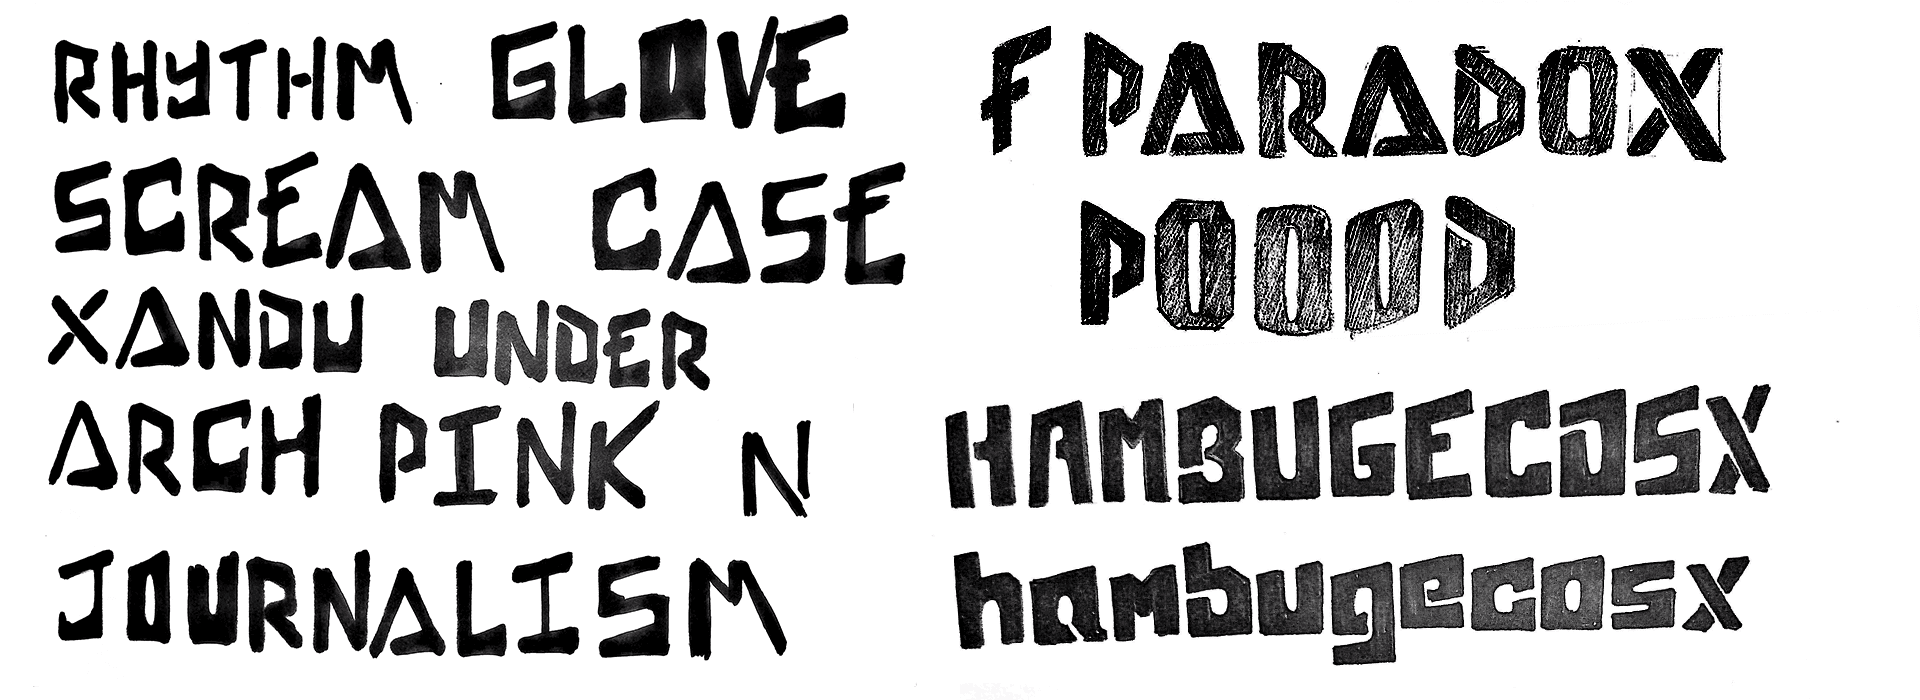 RHYTHM GLOVE
SCREAM CASE
XANDU UNDER
ARCH PINK N
JOURNALISM
F PARADOX
POOOD
HAMBUGECOSX
hambugecosx